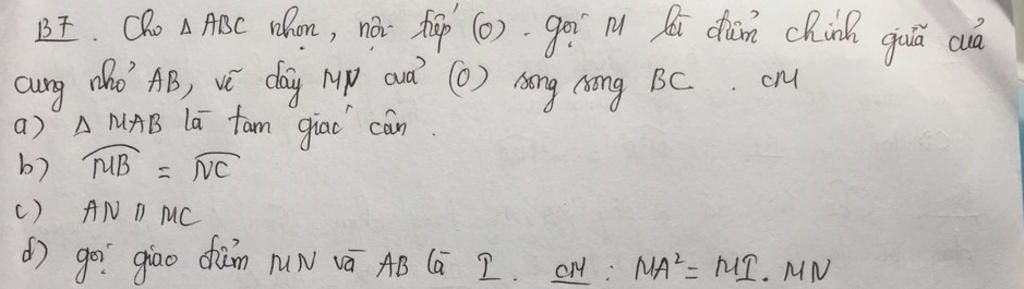 B7. Cho Δ ABC nhọn, nội tiếp (O). gọi M là điểm chính giữa của
cung nhỏ AB, vẽ dây MN của (O) song song BC. CM
a) Δ MAB là tam giác cân.
b) MB = NC
c) AN // MC
d) gọi giao điểm MN và AB là I. CM: MA² = MI. MN